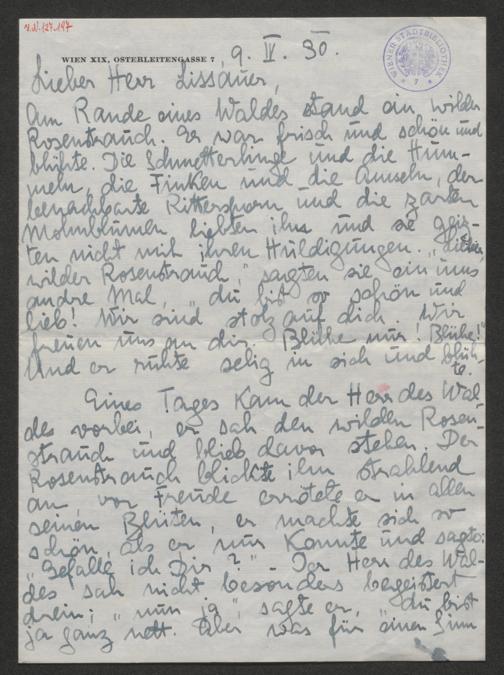 J.N. 127.197
WIEN XIX, OSTERLEITENGASSE 7, 9. IV. 30.
WIENER STADTBIBLIOTHEK
* 7 *
Lieber Herr Lissauer,
Am Rande eines Waldes stand ein wilder
Rosenstrauch. Er war frisch und schön und
blühte. Die Schmetterlinge und die Hum-
meln, die Finken und die Amseln, der
benachbarte Rittersporn und die zarten
Mohnblumen liebten ihn und sie geiz-
ten nicht mit ihren Huldigungen. „Lieber,
wilder Rosenstrauch," sagten sie ein ums
andre Mal, „du bist so schön und
lieb! Wir sind stolz auf dich. Wir
freuen uns an dir. Blühe nur! Blühe!"
Und er ruhte selig in sich und blüh-
te.
Eines Tages kam der Herr des Wal-
des vorbei, er sah den wilden Rosen-
strauch und blieb davor stehen. Der
Rosenstrauch blickte ihn strahlend
an, vor Freude errötete er in allen
seinen Blüten, er machte sich so
schön, als er nur konnte und sagte:
„Gefalle ich Dir?" – Der Herr des Wal-
des sah nicht besonders begeistert
drein; „nun ja", sagte er, „du bist
ja ganz nett. Aber was für einen Sinn